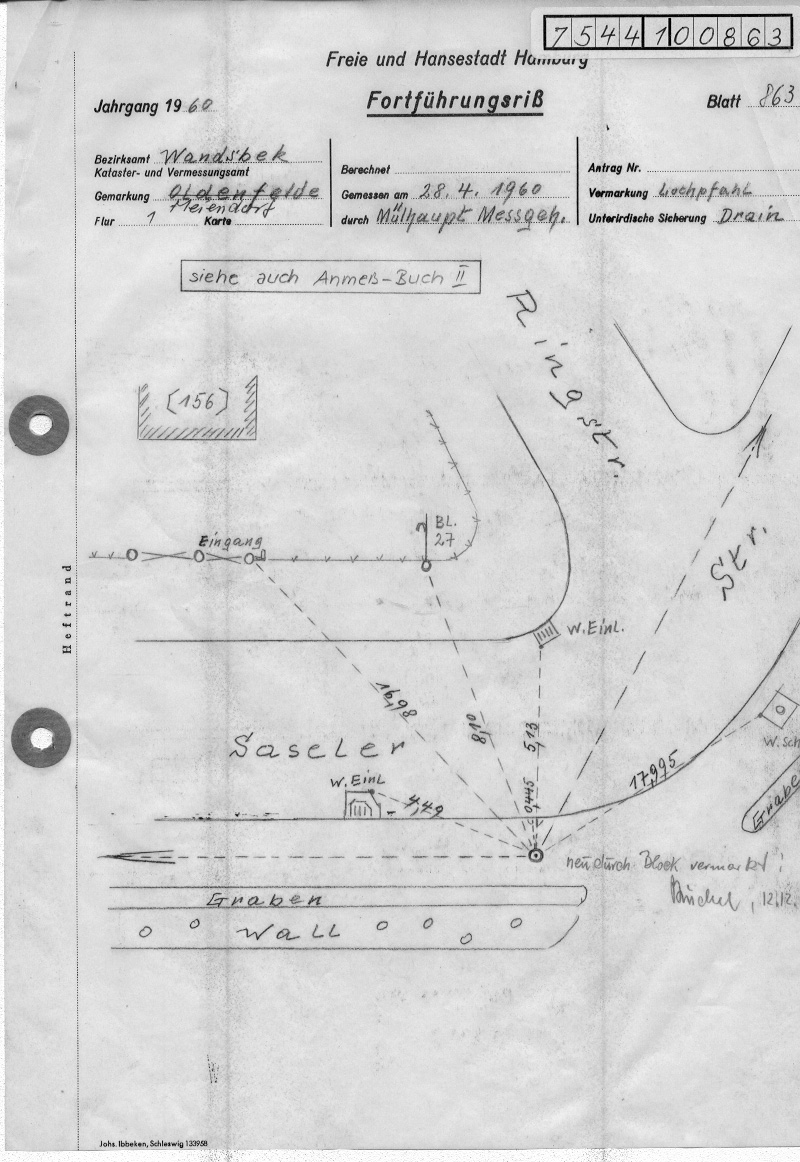 7544100863
Freie und Hansestadt Hamburg
Jahrgang 1960
Fortführungsriß
Blatt 863
Bezirksamt Wandsbek
Kataster- und Vermessungsamt
Gemarkung Oldenfelde
Meiendorf
Flur 1 Karte
Berechnet
Gemessen am 28.4.1960
durch Mülhaupt Messgeh.
Antrag Nr.
Vermarkung Lochpfahl
Unterirdische Sicherung Drain
siehe auch Anmeß-Buch II
Ringstr
[156]
BL.
27
Eingang
Str.
W.Einl.
Heftrand
16,98
8,10
5,13
Saseler
W.Sch
17,995
W.Einl
4,49
0,445
Graben
neu durch Block vermarkt!
12.12.
Graben
Wall
Johs. Ibbeken, Schleswig 133958